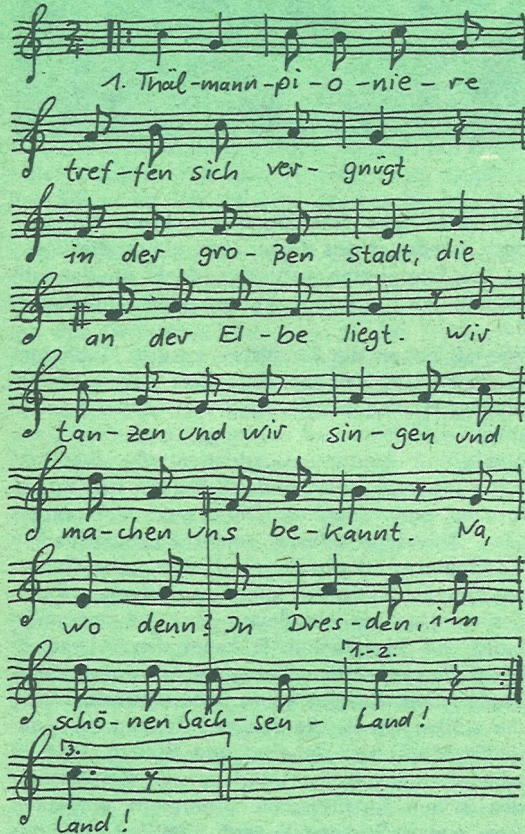 1. Thäl-mann-pi-o-nie-re
tref-fen sich ver-gnügt
in der gro-ßen Stadt, die
an der El-be liegt. Wir
tan-zen und wir sin-gen und
ma-chen uns be-kannt. Na,
wo denn? In Dres-den, im
1.-2.
schö-nen Sach-sen-Land!
3.
Land!